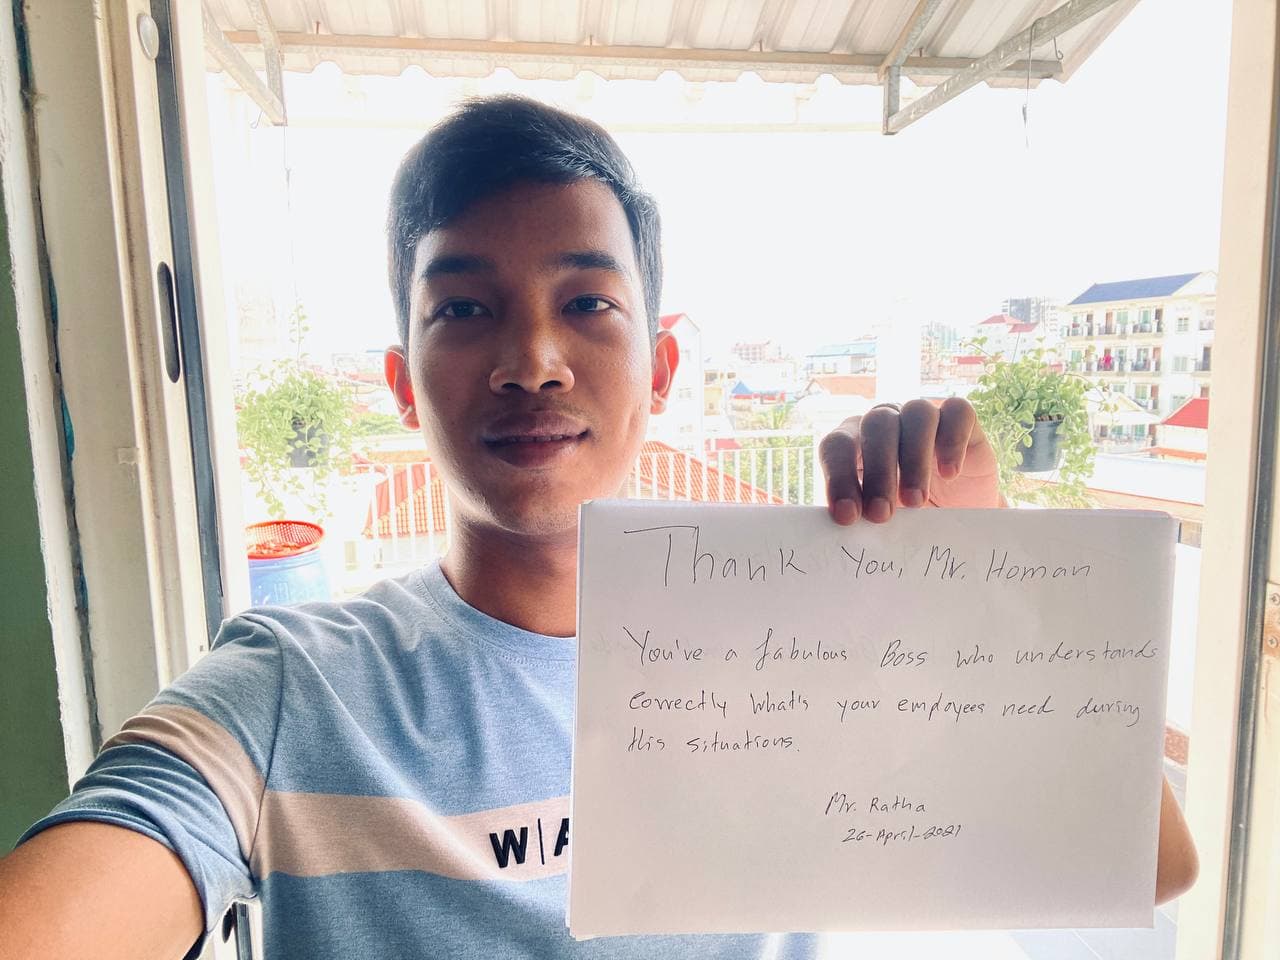 Thank You, Mr. Homan
You've a fabulous Boss who understands
correctly what's your employees need during
this situations.
Mr. Ratha
26-April-2021
W|A